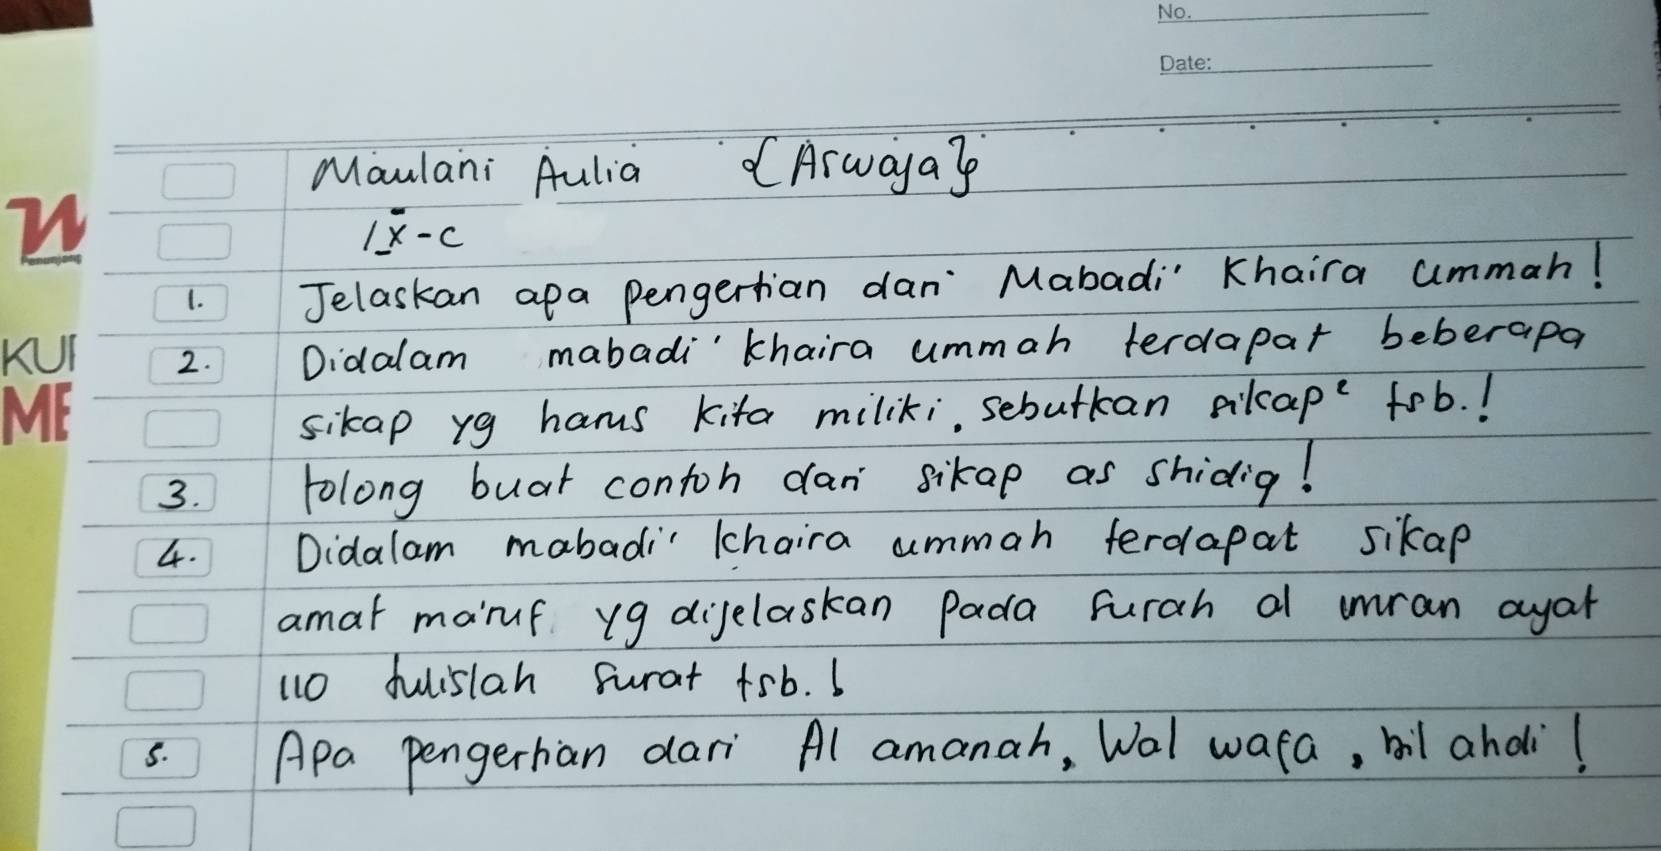 No.
Date:
Maulani Aulia {Aswaja}
IX-C
1. Jelaskan apa pengertian dari Mabadi' Khaira ummah!
2. Didalam mabadi' khaira ummah terdapat beberapa
sikap yg harus kita miliki, sebutkan sikap² tsb.!
3. tolong buat contoh dari sikap as shidiq!
4. Didalam mabadi' khaira ummah terdapat sikap
amar ma'ruf yg dijelaskan pada surah al imran ayat
110 tulislah surat tsb.!
5. Apa pengertian dari Al amanah, Wal wafa, bil ahdi!
KU
ME